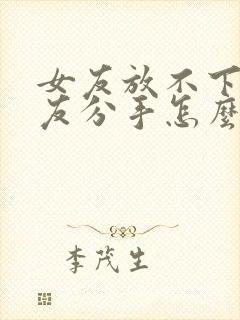 女友放不下
友分手怎麼
李茂生